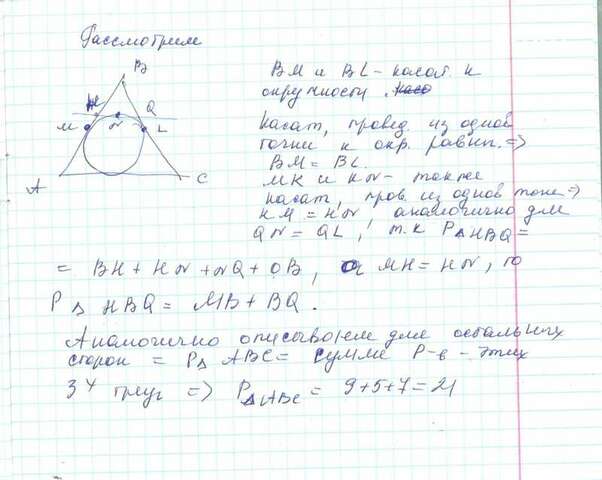 Рассмотрим
B
H
Q
M
N
L
A
C
BM и BL - касат. к
окружности.
касат, провед. из одной
точки к окр. равны. =>
BM = BL.
MK и KN - также
касат, пров. из одной точк =>
KM = HN, аналогично для
QN = QL, т.к P△HBQ =
= BH + HN + NQ + QB, а MH = HN, то
P△ HBQ = MB + BQ.
Аналогично описываем для остальных
сторон = P△ ABC = сумме P-в - этих
3х треуг => P△ABC = 9+5+7=21